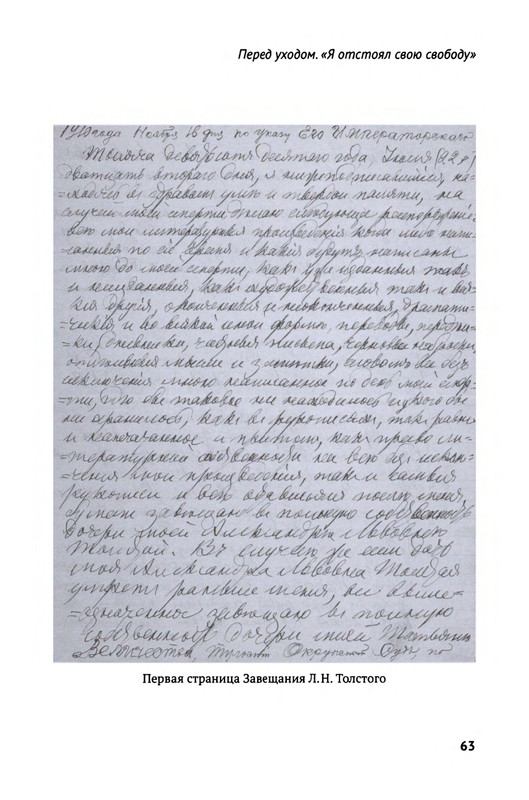 Перед уходом. «Я отстоял свою свободу»
1910 года Ноября 16 дня по указу Его Императорскаго
Тысяча девятьсотъ десятаго года, Іюля (22 )
двадцать второго дня, я нижеподписавшійся, на-
=ходясь въ здравомъ умѣ и твердой памяти, на
случай моей смерти дѣлаю слѣдующее распоряженіе:
всѣ мои литературныя произведенія когда либо напи-
санныя по сіе время и какія будутъ написаны
мною до моей смерти, какъ уже изданныя такъ
и неизданныя, какъ художественныя такъ и вся-
кія другія, оконченныя и неоконченныя, драмати-
=ческія и во всякой иной формѣ, переводы, передѣл-
=ки, дневники, частныя письма, черновые наброски,
отдѣльныя мысли и замѣтки, словомъ все безъ
исключенія мною написанное по день моей смер-
=ти, гдѣ бы таковое ни находилось и у кого бы
ни хранилось, какъ въ рукописяхъ, такъ равно
и напечатанное и притомъ, какъ право ли-
=тературной собственности на всѣ безъ исклю-
=ченія мои произведенія, такъ и самыя
рукописи и всѣ оставшіяся послѣ меня
бумаги завѣщаю въ полную собственность
дочери моей Александрѣ Львовнѣ
Толстой. Въ случаѣ же если дочь
моя Александра Львовна Толстая
умретъ раньше меня, все выше-
=означенное завѣщаю въ полную
собственность дочери моей Татьянѣ
Величества, Тульскій Окружной Судъ, по
Первая страница Завещания Л.Н. Толстого
63